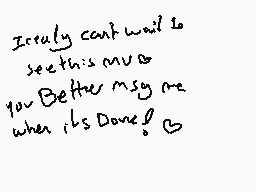 I really can't wait to
see this MV ♡
you Better msg me
when it's Done! ♡